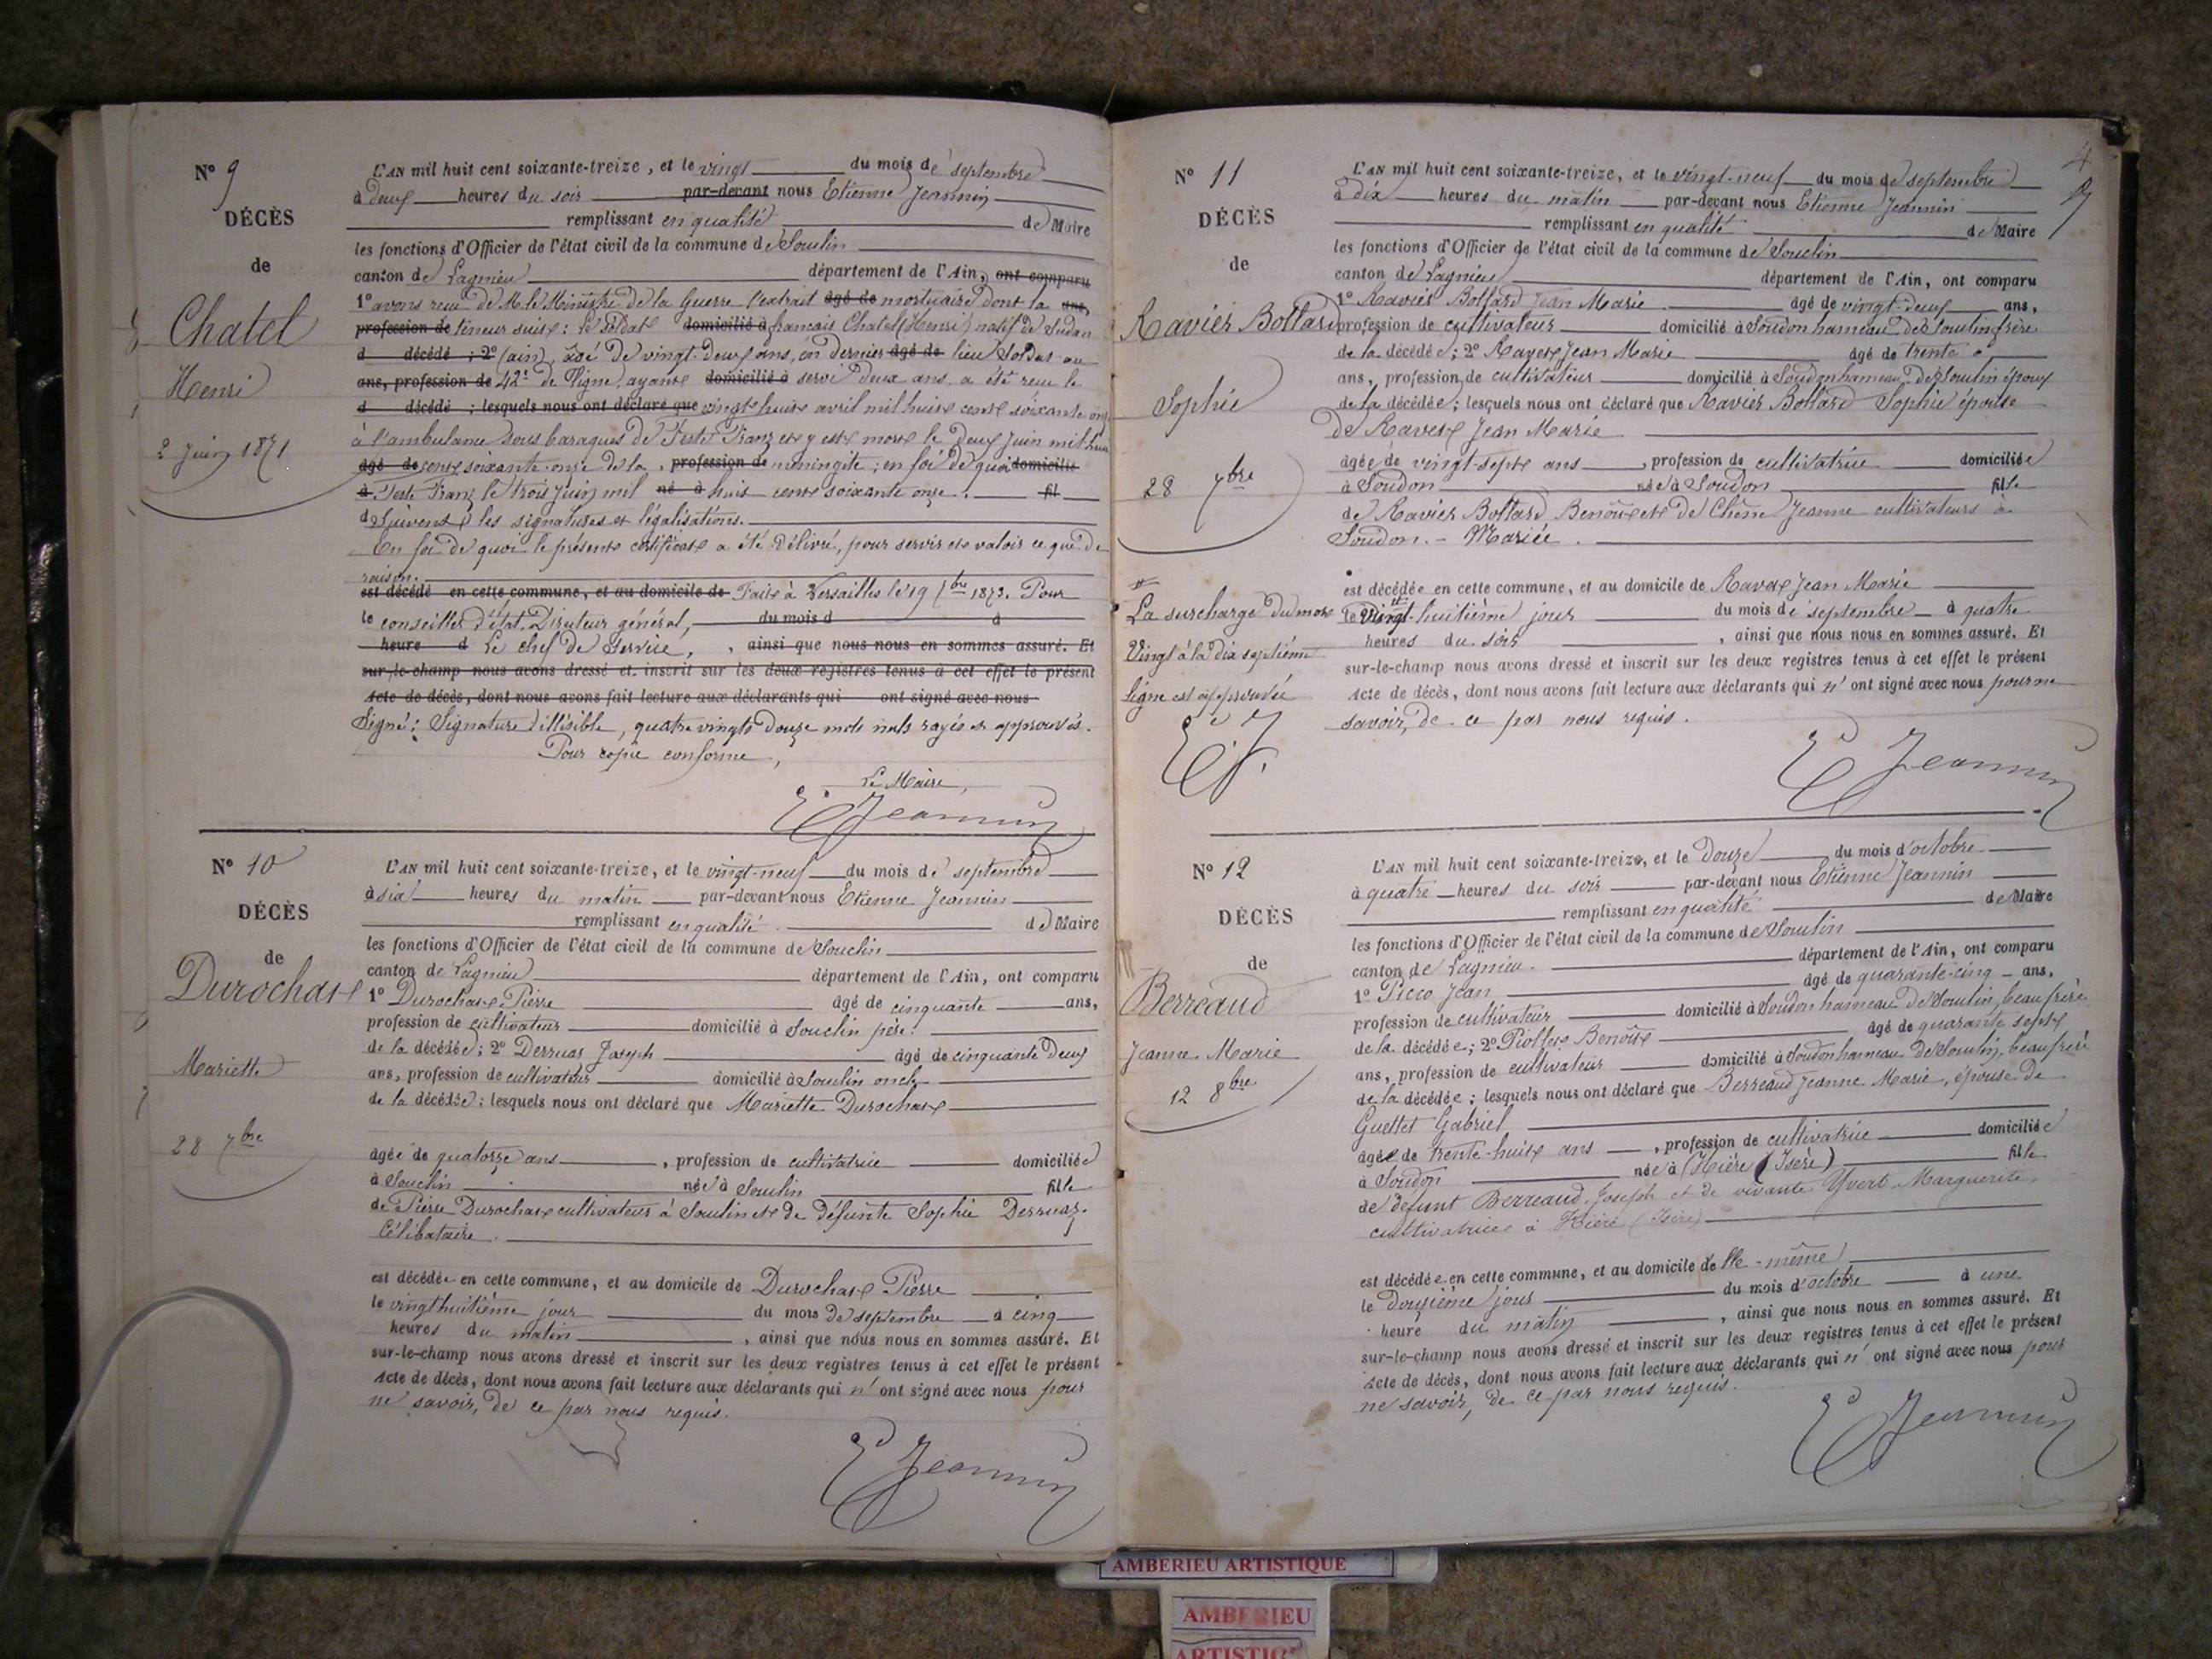 N° 9
DÉCÈS
de
Chatel
Henri
2 Juin 1871
L'AN mil huit cent soixante-treize, et le vingt du mois de septembre
à deux heures du soir par-devant nous Etienne Jeannin
remplissant en qualité de Maire
les fonctions d'Officier de l'état civil de la commune de Souclin
canton de Lagnieu département de l'Ain, ont comparu
1° avons reçu de M. le Ministre de la Guerre l'extrait âgé de mortuaire dont la ans,
profession de teneur suit : Le soldat domicilié à français Chatel (Henri) natif de Sudon
d décédé ; 2° (ain), âgé de vingt-deux ans, en dernier âgé de lieu soldat au
ans, profession de 42e de ligne, ayant domicilié à servi deux ans, a été reçu le
d décédé ; lesquels nous ont déclaré que vingt huit avril mil huit cent soixante onze
à l'ambulance sous baraques de et y est mort le deux Juin mil huit
âgé de cent soixante-onze de la , profession de méningite ; en foi de quoi domicilié
à le trois Juin mil né à huit cent soixante onze. fil
d Suivent les signatures et légalisations.
En foi de quoi le présent certificat a été délivré, pour servir et valoir ce que de
raison.
est décédé en cette commune, et au domicile de Fait à Versailles le 19 7bre 1873. Pour
le conseiller d'état, Directeur général, du mois d à
heure d Le chef de service, , ainsi que nous nous en sommes assuré. Et
sur-le-champ nous avons dressé et inscrit sur les deux registres tenus à cet effet le présent
Acte de décès, dont nous avons fait lecture aux déclarants qui ont signé avec nous
Signé : Signature illisible, quatre vingt douze mots nuls rayés et approuvés.
Pour copie conforme,
Le Maire,
E Jeannin
N° 10
DÉCÈS
de
Durochat
Mariette
28 7bre
L'AN mil huit cent soixante-treize, et le vingt-neuf du mois de septembre
à six heures du matin par-devant nous Etienne Jeannin
remplissant en qualité de Maire
les fonctions d'Officier de l'état civil de la commune de Souclin
canton de Lagnieu département de l'Ain, ont comparu
1° Durochat Pierre âgé de cinquante ans,
profession de cultivateur domicilié à Souclin père
de la décédée ; 2° Derruaz Joseph âgé de cinquante deux
ans, profession de cultivateur domicilié à Souclin oncle
de la décédée ; lesquels nous ont déclaré que Mariette Durochat
âgée de quatorze ans , profession de cultivatrice domiciliée
à Souclin née à Souclin fille
de Pierre Durochat cultivateur à Souclin et de défunte Sophie Derruaz.
Célibataire.
est décédée en cette commune, et au domicile de Durochat Pierre
le vingt huitième jour du mois de septembre à cinq
heures du matin , ainsi que nous nous en sommes assuré. Et
sur-le-champ nous avons dressé et inscrit sur les deux registres tenus à cet effet le présent
Acte de décès, dont nous avons fait lecture aux déclarants qui n'ont signé avec nous pour
ne savoir, de ce par nous requis.
E Jeannin
4
N° 11
DÉCÈS
de
Ravier Bottard
Sophie
28 7bre
La surcharge du mot
Vingt à la dix septième
ligne est approuvée
E J
L'AN mil huit cent soixante-treize, et le vingt-neuf du mois de septembre
à dix heures du matin par-devant nous Etienne Jeannin
remplissant en qualité de Maire
les fonctions d'Officier de l'état civil de la commune de Souclin
canton de Lagnieu département de l'Ain, ont comparu
1° Ravier Bottard Jean Marie âgé de vingt-deux ans,
profession de cultivateur domicilié à Soudon hameau de Souclin frère
de la décédée ; 2° Ravet Jean Marie âgé de trente
ans, profession de cultivateur domicilié à Soudon hameau de Souclin époux
de la décédée ; lesquels nous ont déclaré que Ravier Bottard Sophie épouse
de Ravet Jean Marie
âgée de vingt-sept ans , profession de cultivatrice domiciliée
à Soudon née à Soudon fille
de Ravier Bottard Benoît et de Chêne Jeanne cultivateurs à
Soudon. - Mariée.
est décédée en cette commune, et au domicile de Ravet Jean Marie
le vingt-huitième jour du mois de septembre à quatre
heures du soir , ainsi que nous nous en sommes assuré. Et
sur-le-champ nous avons dressé et inscrit sur les deux registres tenus à cet effet le présent
Acte de décès, dont nous avons fait lecture aux déclarants qui n'ont signé avec nous pour ne
savoir, de ce par nous requis.
E Jeannin
N° 12
DÉCÈS
de
Berreaud
Jeanne Marie
12 8bre
L'AN mil huit cent soixante-treize, et le douze du mois d'octobre
à quatre heures du soir par-devant nous Etienne Jeannin
remplissant en qualité de Maire
les fonctions d'Officier de l'état civil de la commune de Souclin
canton de Lagnieu département de l'Ain, ont comparu
1° Picco Jean âgé de quarante-cinq ans,
profession de cultivateur domicilié à Soudon hameau de Souclin, beau frère
de la décédée ; 2° Piollet Benoît âgé de quarante sept
ans, profession de cultivateur domicilié à Soudon hameau de Souclin, beau frère
de la décédée ; lesquels nous ont déclaré que Berreaud Jeanne Marie, épouse de
Guettet Gabriel
âgée de trente-huit ans , profession de cultivatrice domiciliée
à Soudon née à Hière (Isère) fille
de défunt Berreaud Joseph et de vivante Yvert Marguerite,
cultivatrice à Hière (Isère)
est décédée en cette commune, et au domicile d'elle-même
le douzième jour du mois d'octobre à une
heure du matin , ainsi que nous nous en sommes assuré. Et
sur-le-champ nous avons dressé et inscrit sur les deux registres tenus à cet effet le présent
Acte de décès, dont nous avons fait lecture aux déclarants qui n'ont signé avec nous pour
ne savoir, de ce par nous requis.
E Jeannin
AMBERIEU ARTISTIQUE
AMBERIEU